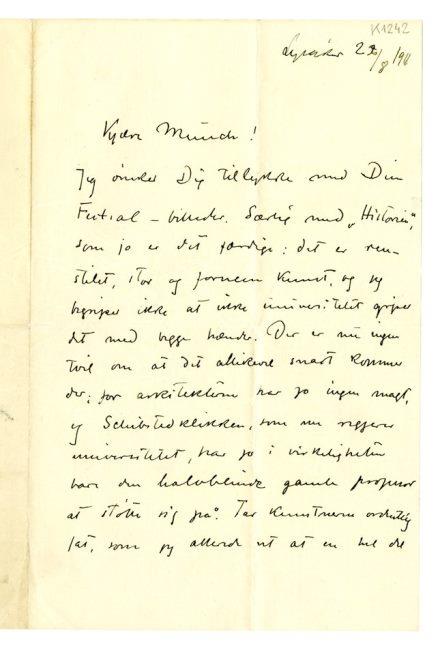 K1242
Lysaker 22/8 1911
Kjære Munch!
Jeg ønsker Dig tillykke med Din
Festsal-billeder. Særlig med „Historien",
som jo er det færdige: det er ren-
stilet, stor og fornem kunst, og jeg
begriper ikke at ikke universitetet griper
det med begge hænder. Der er nu ingen
tvil om at det allikevel snart kommer
der; for arkitekterne har jo ingen magt,
og Schibstedklikken, som nu regjerer
universitetet, har jo i virkeligheten
bare den halvblinde gamle professor
at støtte sig på. Tar kunstnerne ordentlig
fat, som jeg allerede vet at en hel del